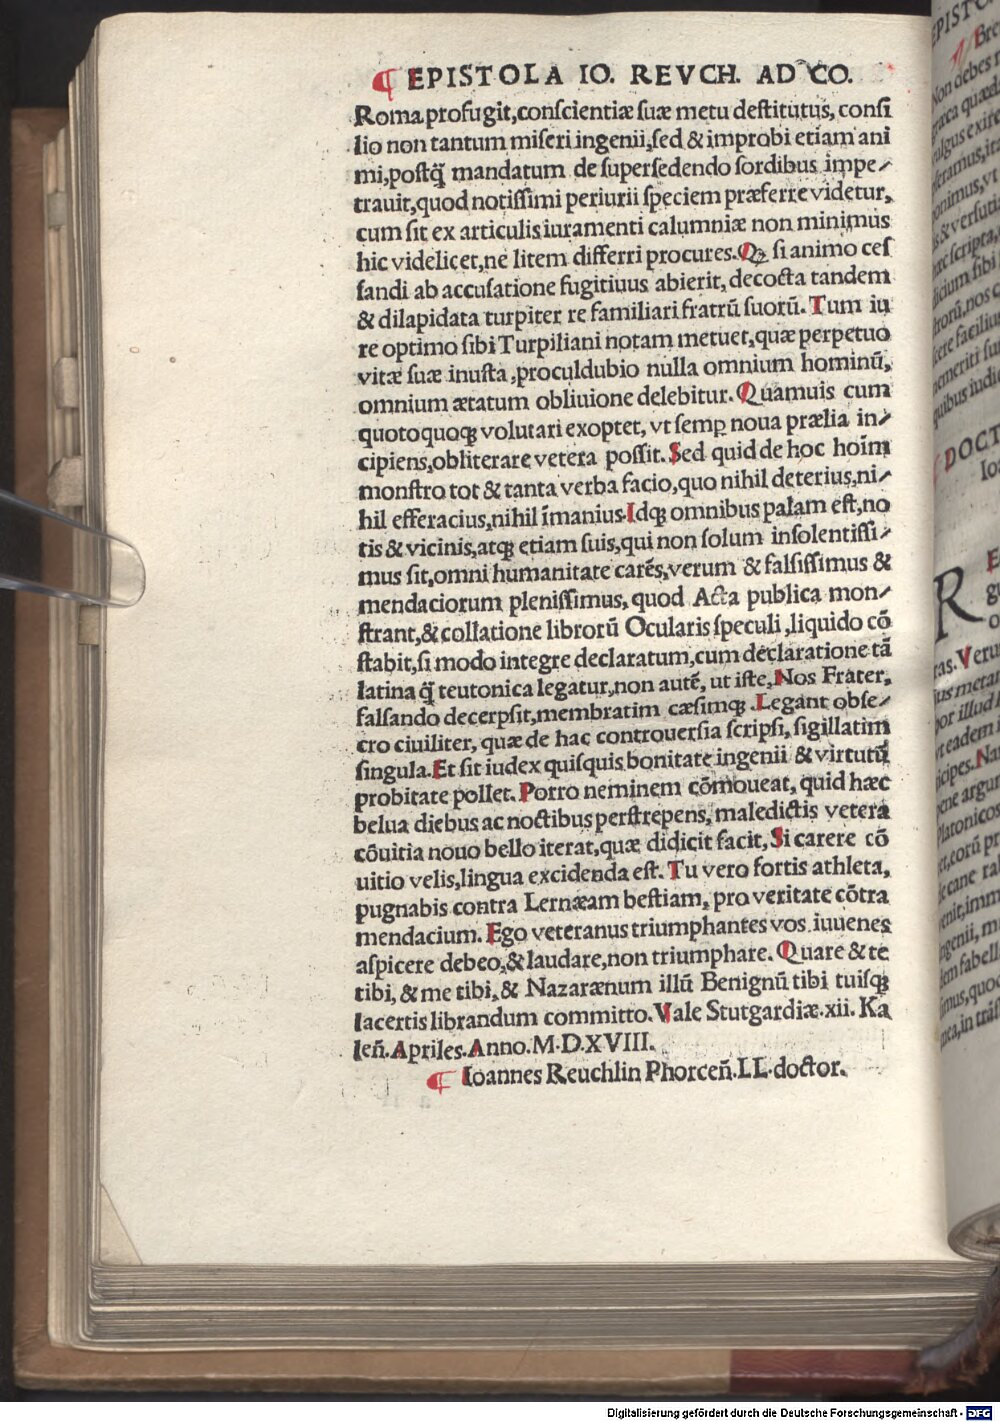 ¶ EPISTOLA IO. REVCH. AD CO.
Roma profugit,conſcientiæ ſuæ metu deſtitutus, conſi
lio non tantum miſeri ingenii,ſed & improbi etiam ani
mi,poſtq̃ mandatum de ſuperſedendo ſordibus impe⸗
trauit,quod notiſſimi periurii ſpeciem præferre videtur,
cum ſit ex articulis iuramenti calumniæ non minimus
hic videlicet,ne litem differri procures.Qꝫ ſi animo ceſ
ſandi ab accuſatione fugitiuus abierit, decocta tandem
& dilapidata turpiter re familiari fratrũ ſuorũ. Tum iu
re optimo ſibi Turpiliani notam metuet,quæ perpetuo
vitæ ſuæ inuſta ,proculdubio nulla omnium hominũ,
omnium ætatum obliuione delebitur. Quamuis cum
quotoquoqꝫ volutari exoptet, vt ſemꝑ noua prælia in⸗
cipiens,obliterare vetera poſſit. Sed quid de hoc hoim̃
monſtro tot & tanta verba facio,quo nihil deterius,ni⸗
hil efferacius,nihil ĩmanius.Idqꝫ omnibus palam eſt,no
tis & vicinis,atqꝫ etiam ſuis,qui non ſolum inſolentiſſi⸗
mus ſit,omni humanitate carẽs,verum & falſiſſimus &
mendaciorum pleniſſimus, quod Acta publica mon⸗
ſtrant,& collatione librorũ Ocularis ſpeculi ,liquido cõ
ſtabit,ſi modo integre declaratum,cum declaratione tã
latina q̃ teutonica legatur,non autẽ, ut iſte, Nos Frater,
falſando decerpſit,membratim cæſimqꝫ .Legant obſe⸗
cro ciuiliter, quæ de hac controuerſia ſcripſi, ſigillatim
ſingula.Et ſit iudex quiſquis bonitate ingenii & virtutũ
probitate pollet. Porro neminem cõmoueat, quid hæc
belua diebus ac noctibus perſtrepens, maledictis vetera
cõuitia nouo bello iterat,quæ didicit facit, Si carere cõ
uitio velis,lingua excidenda eſt. Tu vero fortis athleta,
pugnabis contra Lernæam beſtiam, pro veritate cõtra
mendacium. Ego veteranus triumphantes vos iuuenes
aſpicere debeo,& laudare,non triumphare. Quare & te
tibi, & me tibi, & Nazarænum illũ Benignũ tibi tuiſqꝫ
lacertis librandum committo. Vale Stutgardiæ.xii. Ka
leñ.Apriles.Anno.M.D.XVIII.
¶ Ioannes Reuchlin Phorceñ.LL.doctor.
Digitalisierung gefördert durch die Deutsche Forschungsgemeinschaft - DFG